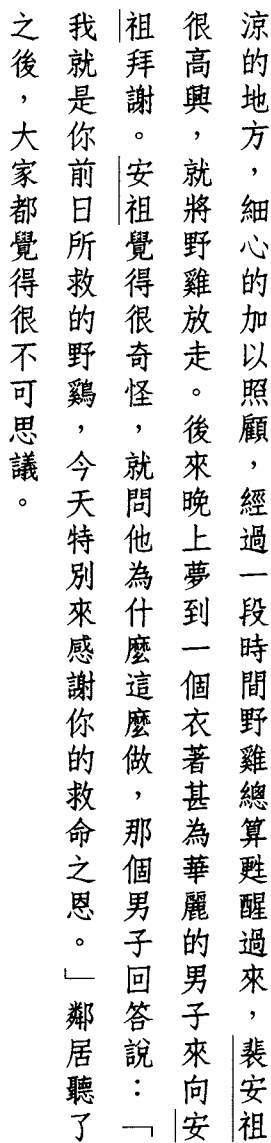 涼的地方，細心的加以照顧，經過一段時間野雞總算甦醒過來，裴安祖
很高興，就將野雞放走。後來晚上夢到一個衣著甚為華麗的男子來向安
祖拜謝。安祖覺得很奇怪，就問他為什麼這麼做，那個男子回答說：「
我就是你前日所救的野鷄，今天特別來感謝你的救命之恩。」鄰居聽了
之後，大家都覺得很不可思議。